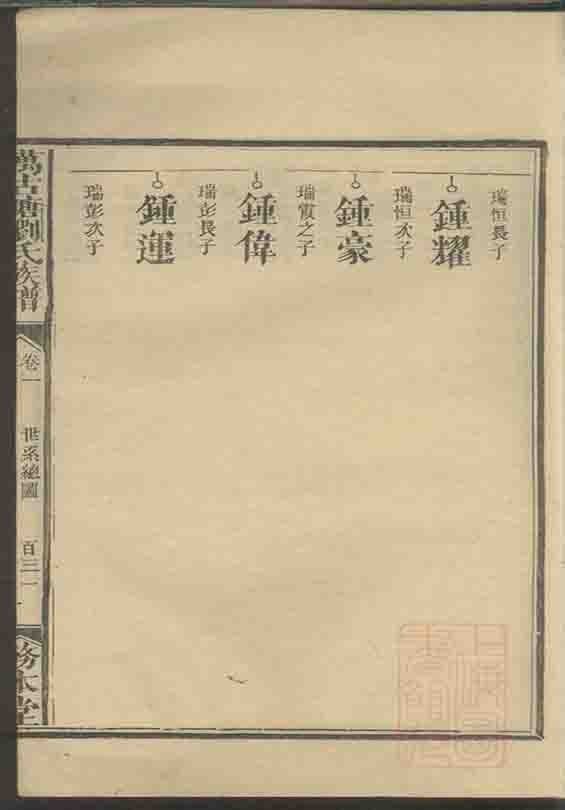 瑞恒長子
鍾耀
瑞恒次子
鍾豪
瑞之子
鍾偉
瑞彭長子
鍾運
瑞彭次子
萬古塘劉氏族譜
卷一
世系總圖
百三一
務本堂